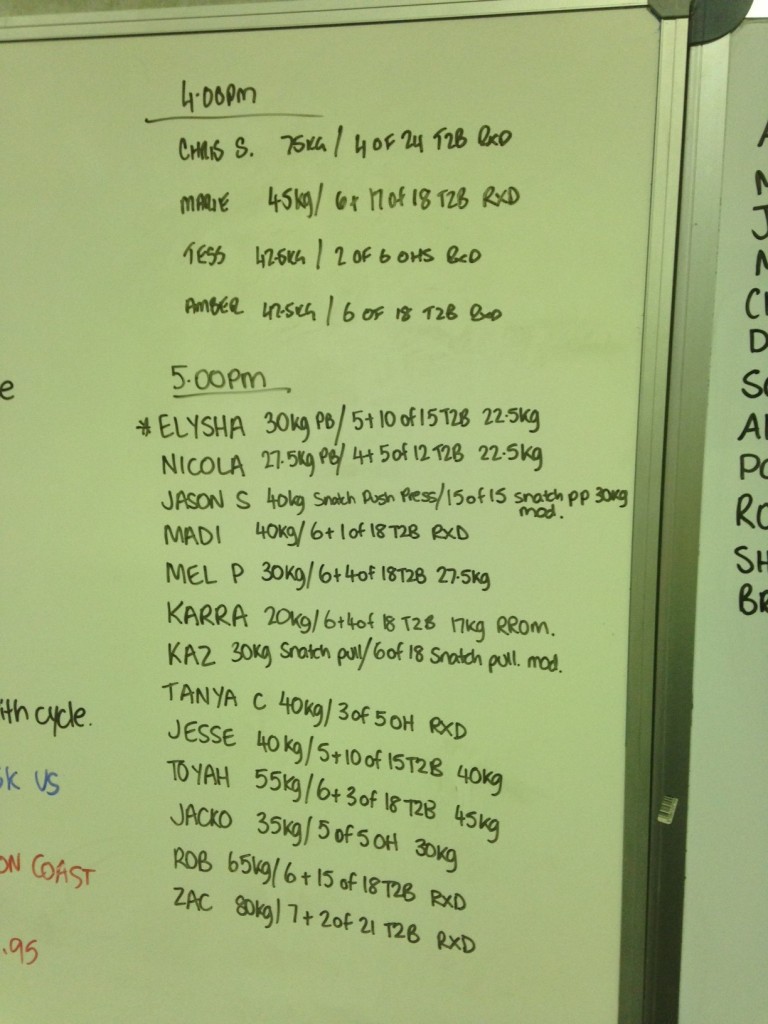 4.00PM
CHRIS S. 75KG / 4 OF 24 T2B RXD
MARIE 45kg/ 6+ 17 of 18 T2B RXD
TESS 42.5KG / 2 OF 6 OHS RXD
AMBER 42.5KG / 6 OF 18 T2B RXD
5.00PM
* ELYSHA 30kg PB/ 5+10 of 15 T2B 22.5kg
NICOLA 27.5kg PB/ 4+5 of 12 T2B 22.5kg
JASON S 40kg Snatch Push Press/15 of 15 snatch pp 30kg
mod.
MADI 40kg/6+1 of 18 T2B RXD
MEL P 30kg/6+4 of 18 T2B 27.5kg
KARRA 20kg/6+4 of 18 T2B 17kg RROM.
KAZ 30kg Snatch pull/6 of 18 Snatch pull. mod.
TANYA C 40kg/3 of 5 OH RXD
JESSE 40kg/5+10 of 15 T2B 40kg
TOYAH 55kg/6+3 of 18 T2B 45kg
JACKO 35kg/5 of 5 OH 30kg
ROB 65kg/6+15 of 18 T2B RXD
ZAC 80kg/7+2 of 21 T2B RXD
e
ith cycle.
k US
ON COAST
.95
A
M
J
M
C
D
SC
A
PO
RO
SH
BR